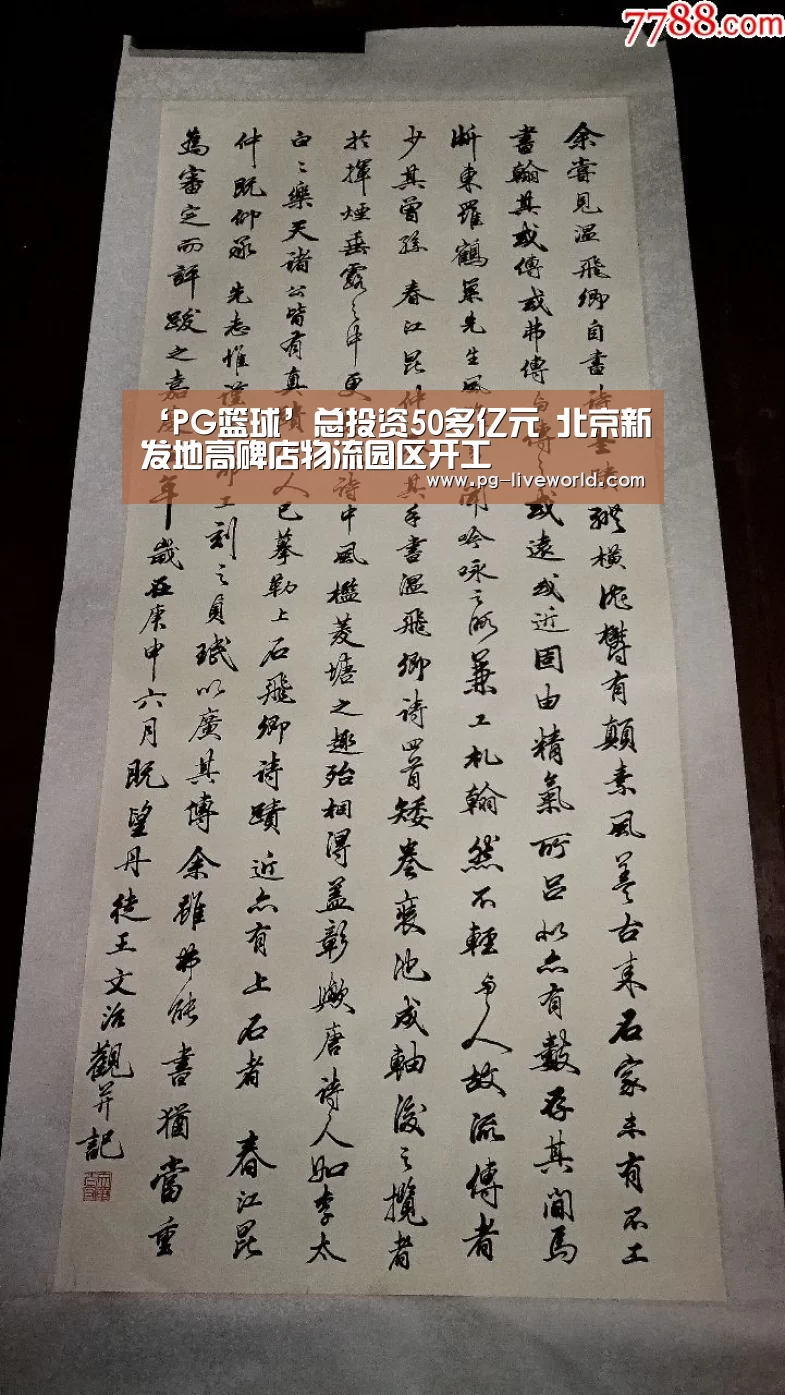 7788.com
余嘗見溫飛卿自書詩 縱橫 鬱有顛素風蓋古來石家未有不工
書翰其或傳或弗傳 傳之或遠或近固由精氣所 亦有數存其間焉
浙東羅鶴 先生風 聞吟咏之所兼工札翰然不輕與人故流傳者
少其曾孫春江昆仲 其手書溫飛卿詩四首矮卷裝池成軸後之攬者
於揮煙垂露之中更 詩中風檻菱塘之趣殆相得益彰 唐詩人如李太
白白樂天諸公皆有真 人已摹勒上石飛卿詩蹟近亦有上石者春江昆
仲既仰承先志惟 工刻之貞珉以廣其傳余雖弗能書猶當重
為審定而評跋之嘉 年歲在庚申六月既望丹徒王文治觀并記
‘PG篮球’总投资50多亿元 北京新
发地高碑店物流园区开工
www.pg-liveworld.com